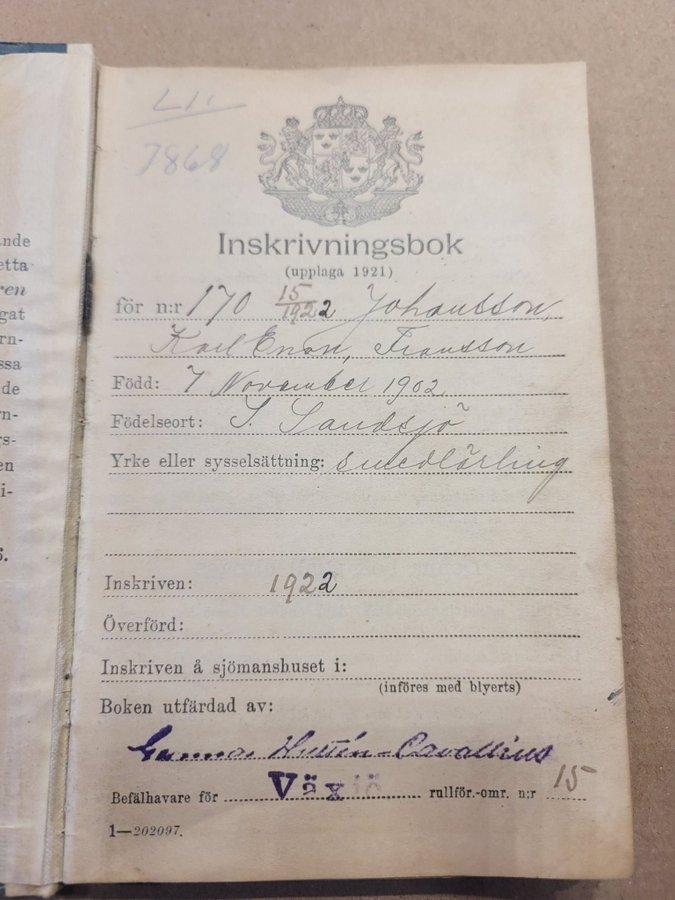 7868
Inskrivningsbok
(upplaga 1921)
för n:r 170 15/1922 Johansson,
Karl Enon, Fransson
Född: 7 November 1902
Födelseort: S. Sandsjö
Yrke eller sysselsättning: smedlärling
Inskriven: 1922
Överförd:
Inskriven å sjömanshuset i:
(införes med blyerts)
Boken utfärdad av:
Gunnar Hyltén-Cavallius
Befälhavare för Växjö rullför.-omr. n:r 15
1—202097.
nde
etta
ren
gat
rn-
ssa
de
rn-
rs-
en
i-